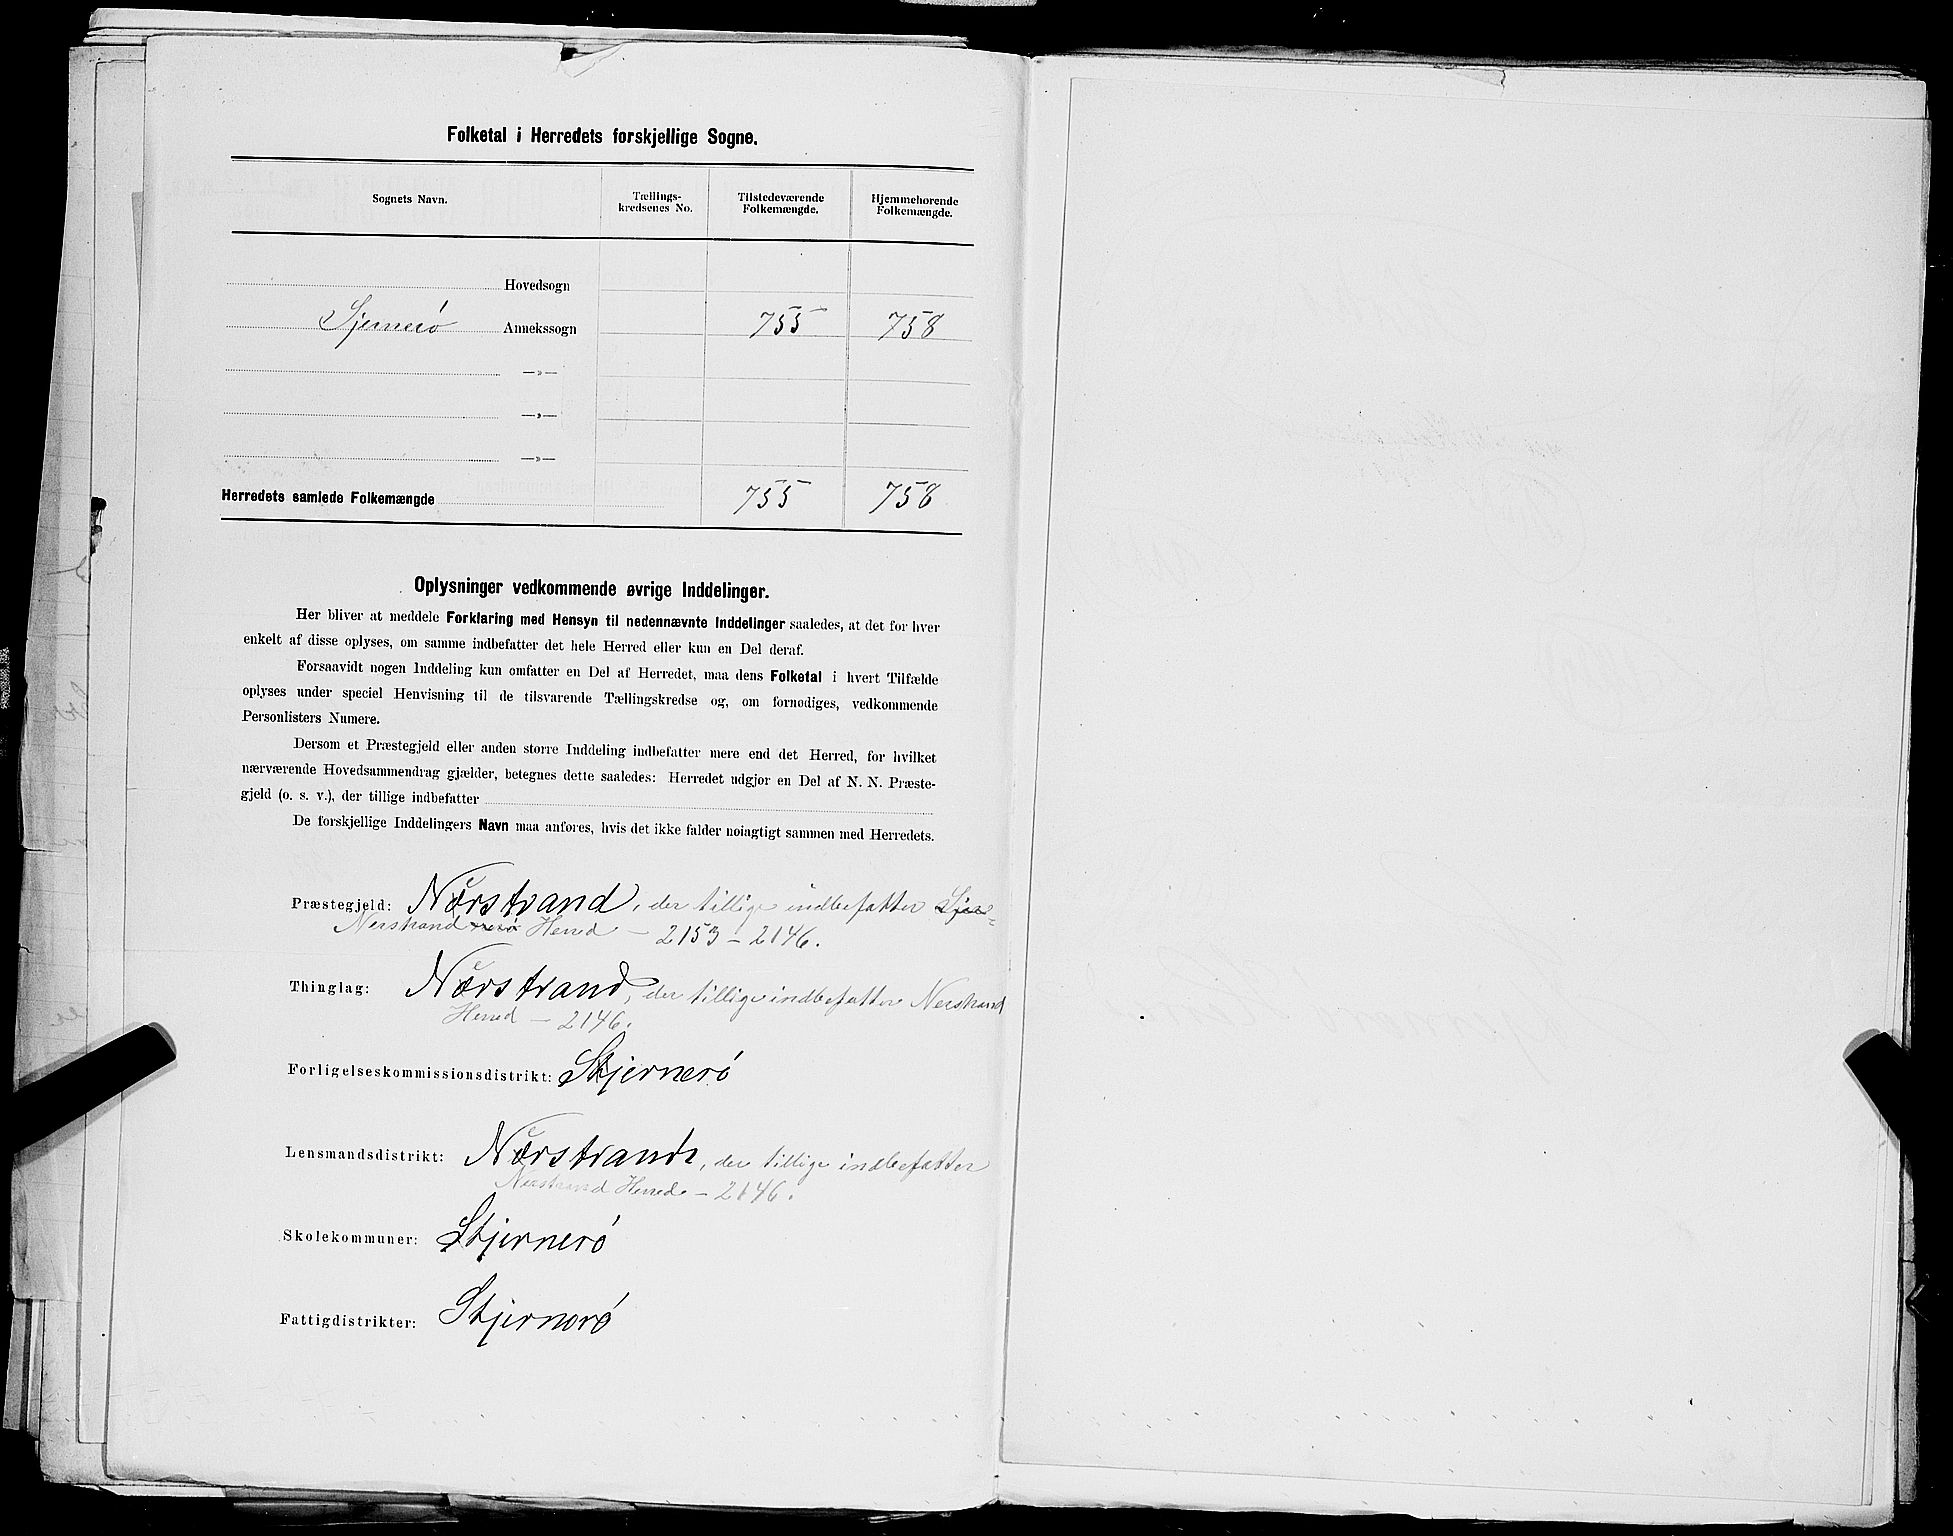 Folketal i Herredets forskjellige Sogne.
Sognets Navn. Tællings-kredsenes No. Tilstedeværende Folkemængde. Hjemmehørende Folkemængde.
Hovedsogn
Sjernerö Annekssogn 755 758
—„—
—„—
—„—
Herredets samlede Folkemængde 755 758
Oplysninger vedkommende øvrige Inddelinger.
Her bliver at meddele Forklaring med Hensyn til nedennævnte Inddelinger saaledes, at det for hver
enkelt af disse oplyses, om samme indbefatter det hele Herred eller kun en Del deraf.
Forsaavidt nogen Inddeling kun omfatter en Del af Herredet, maa dens Folketal i hvert Tilfælde
oplyses under speciel Henvisning til de tilsvarende Tællingskredse og, om fornødiges, vedkommende
Personlisters Numere.
Dersom et Præstegjeld eller anden større Inddeling indbefatter mere end det Herred, for hvilket
nærværende Hovedsammendrag gjælder, betegnes dette saaledes: Herredet udgjør en Del af N. N. Præste-
gjeld (o. s. v.), der tillige indbefatter
De forskjellige Inddelingers Navn maa anføres, hvis det ikke falder nøiagtigt sammen med Herredets.
Præstegjeld: Nærstrand, der tillige indbefatter Sjer-
Nerstrand nerö Herred — 2153 – 2146.
Thinglag: Nærstrand, der tillige indbefatter Nerstrand
Herred — 2146.
Forligelseskommissionsdistrikt: Stjernerö
Lensmandsdistrikt: Nærstrands, der tillige indbefatter
Nerstrand Herred — 2146.
Skolekommuner: Stjernerö
Fattigdistrikter: Stjernerö